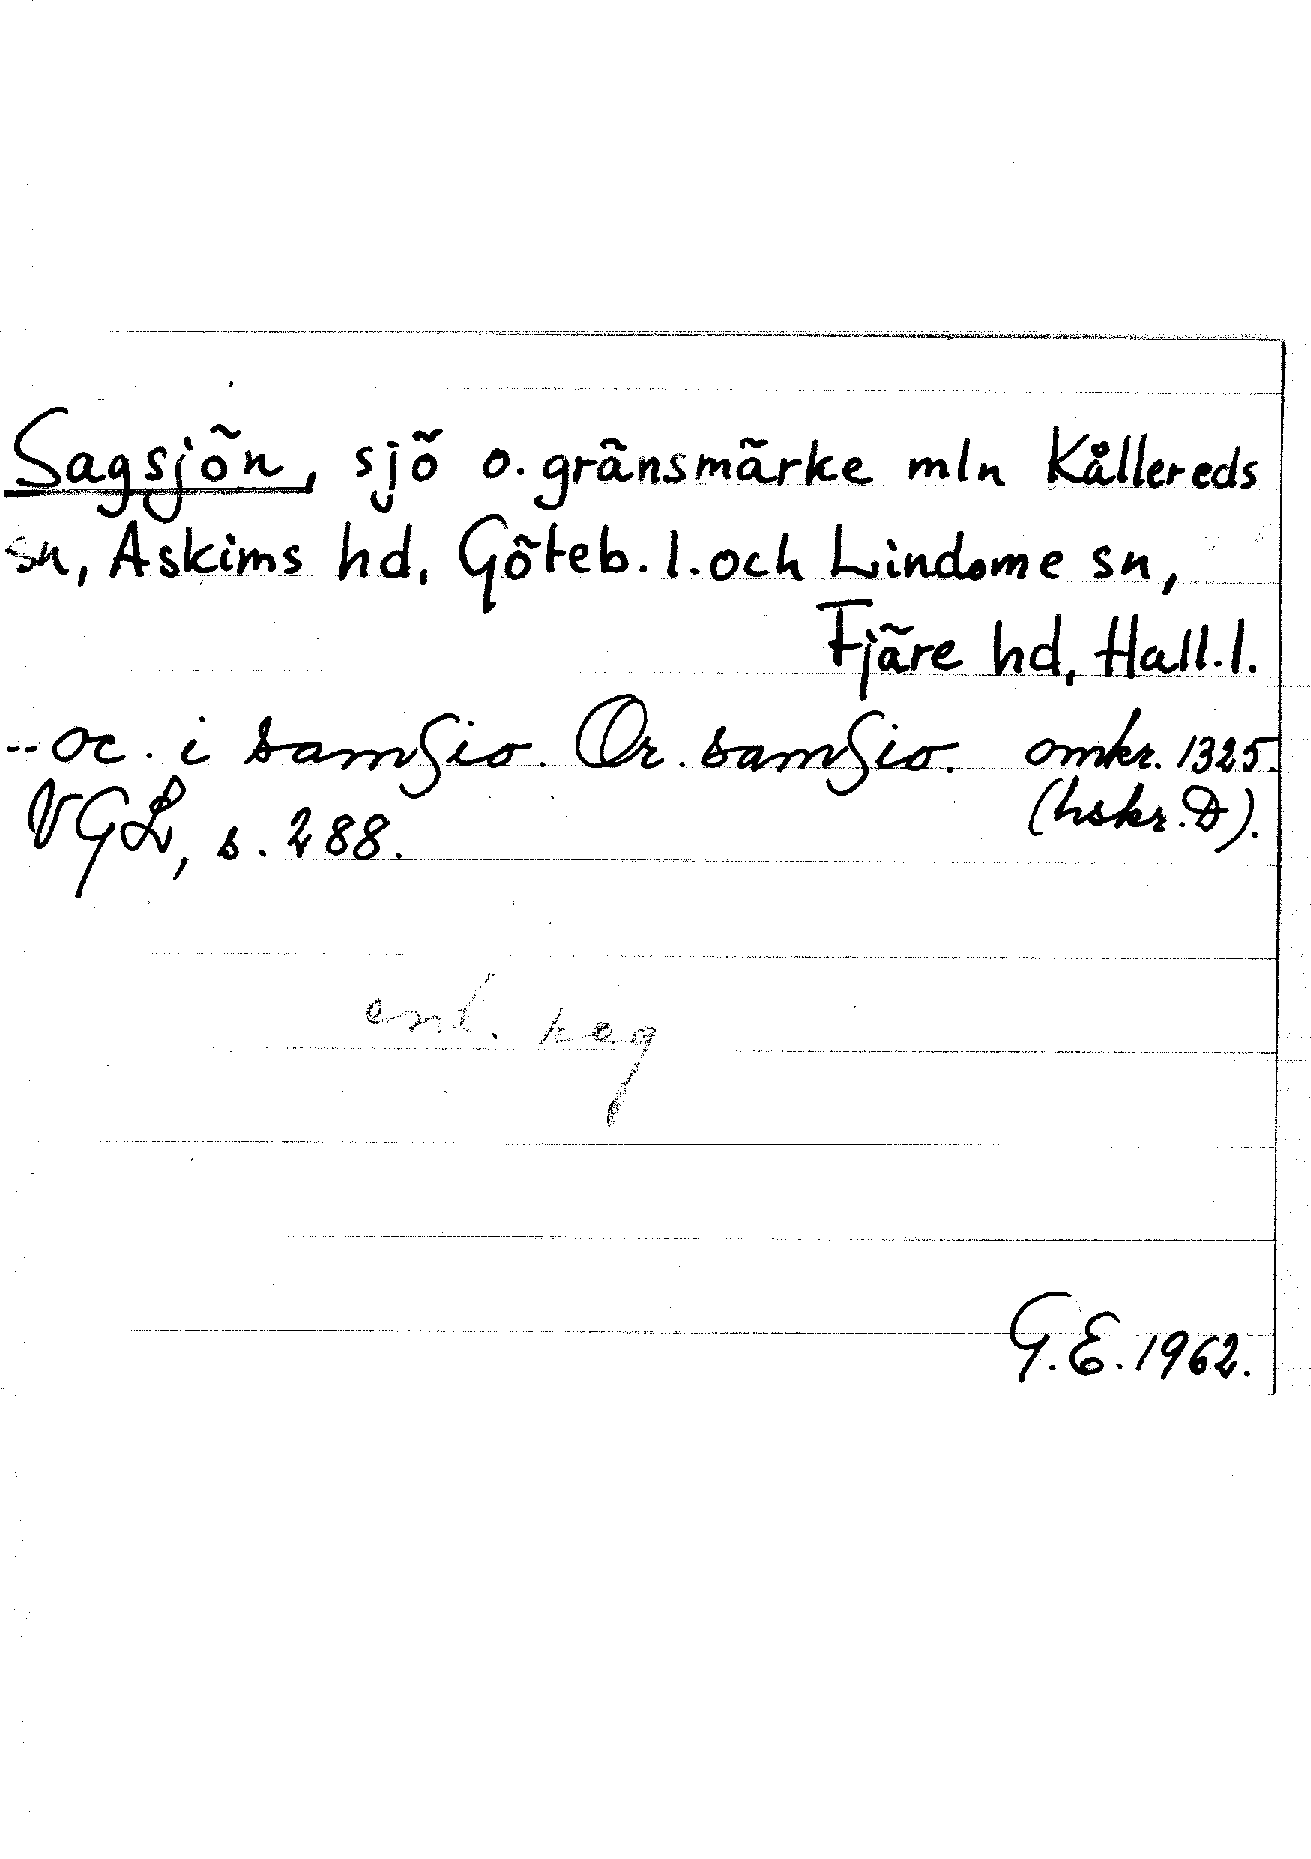 Sagsjön, sjö o. gränsmärke mln Kållereds
sn, Askims hd, Göteb. l. och Lindome sn,
Fjäre hd, Hall. l.
-- oc. i samsio. Or. samsio. omkr. 1325.
VGL, s. 288. (hskr. D).
enl. reg
G.E. 1962.